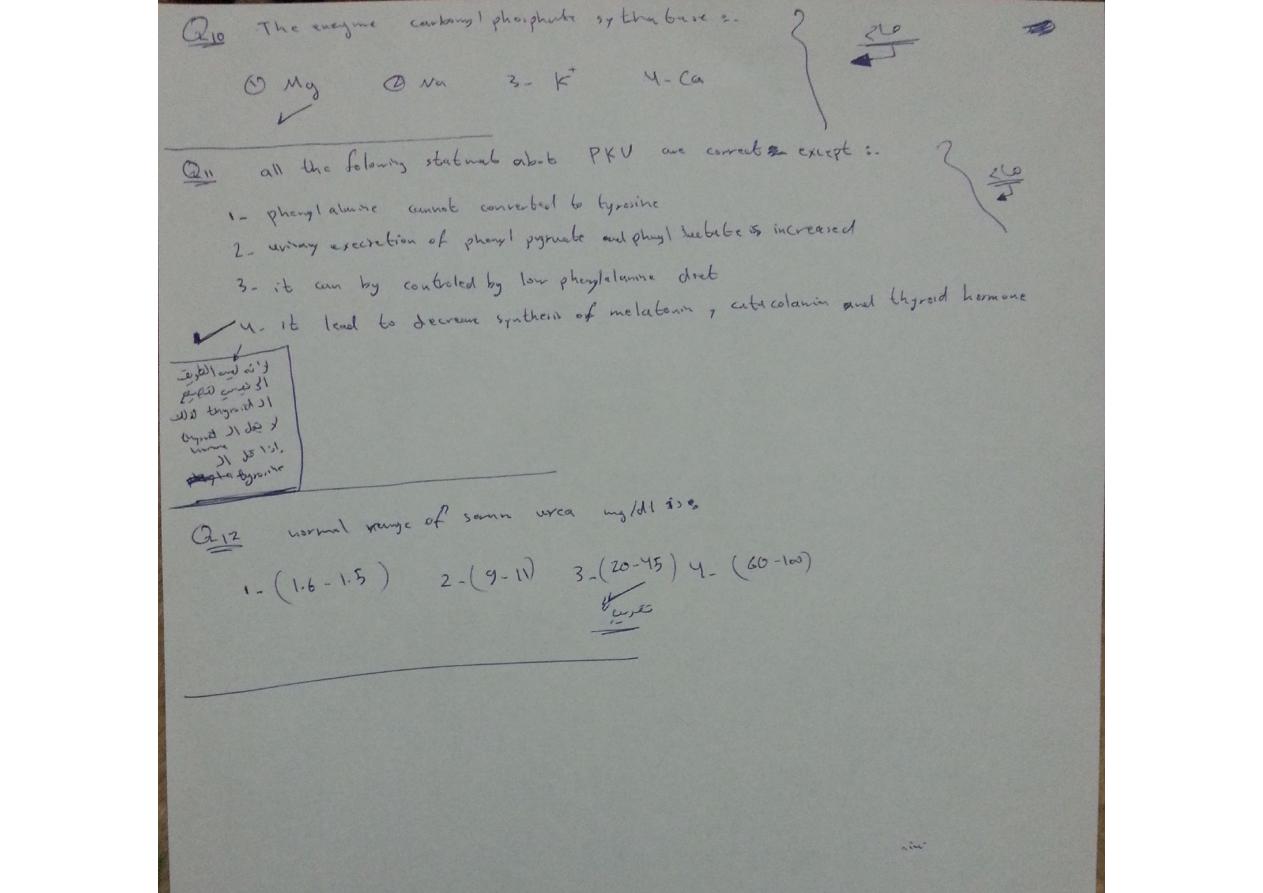 Q10 The enzyme carbomyl phosphate sythatase :.
① Mg ② Na 3- K+ 4- Ca
Q11 all the folowing statmat abot PKU are correct except :.
1- phenylalanine cannot converted to tyrosine
2- urinay execretion of phenyl pyruvate and phenyl lactate is increased
3- it can by controled by low phenylalanine diet
4- it lead to decrease synthesis of melatonin , catacolamin and thyroid hormone
لانه ليس الطريق
الرئيسي لتصنيع
الـ thyroid لذلك
لا يقل الـ thyroid
hormone
اذا قل الـ
tyrosine
Q12 normal range of serum urea mg/dl is :
1- (1.6 - 1.5) 2- (9 - 11) 3- (20-45) 4- (60-100)
تقريبا